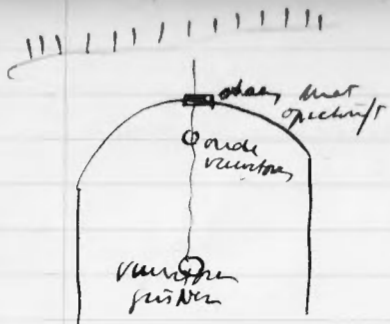 steen met
opschrift
oude
vuurtoren
vuurtoren